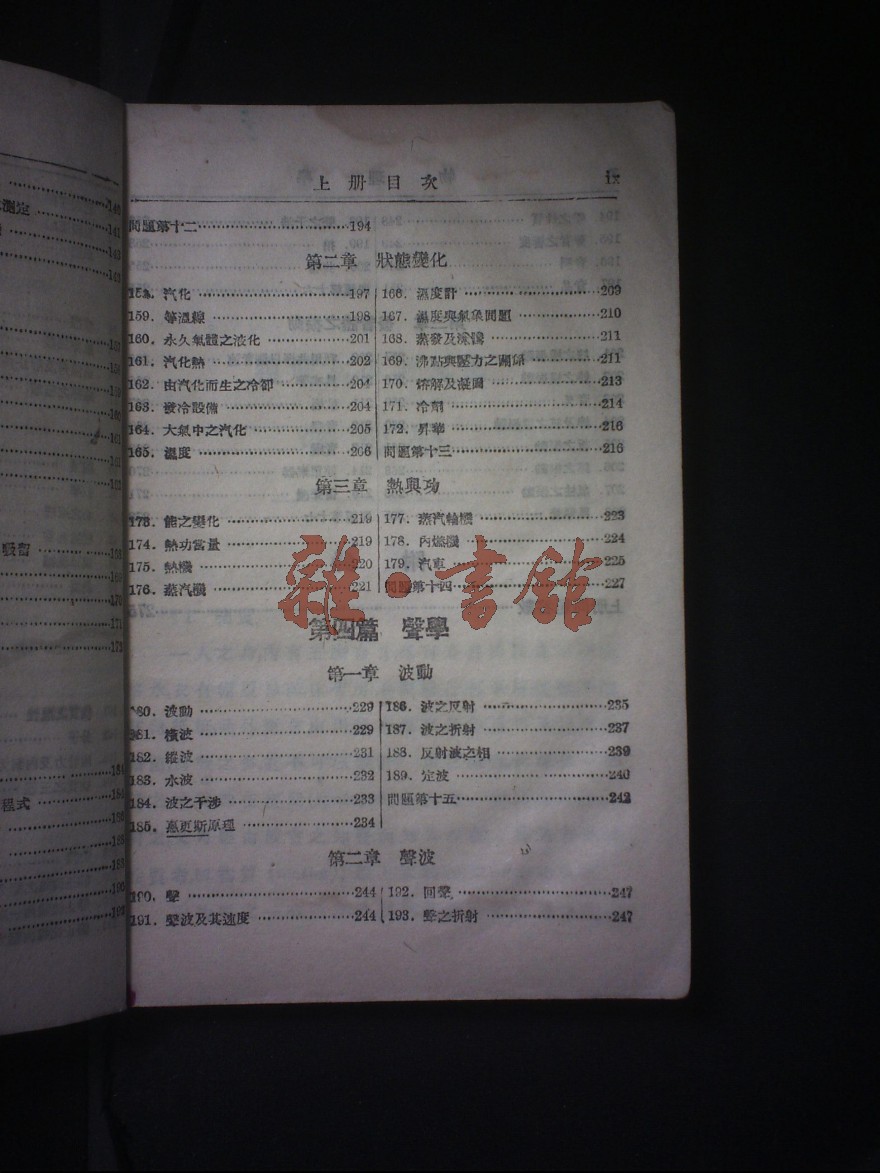 上册目次 ix
問題第十二 194
第二章 狀態變化
158. 汽化 197
159. 等溫線 198
160. 永久氣體之液化 201
161. 汽化熱 202
162. 由汽化而生之冷卻 204
163. 發冷設備 204
164. 大氣中之汽化 205
165. 濕度 206
166. 濕度計 209
167. 濕度與氣象問題 210
168. 蒸發及沸騰 211
169. 沸點與壓力之關係 211
170. 熔解及凝固 213
171. 冷劑 214
172. 昇華 216
問題第十三 216
第三章 熱與功
173. 能之變化 219
174. 熱功當量 219
175. 熱機 220
176. 蒸汽機 221
177. 蒸汽輪機 223
178. 內燃機 224
179. 汽車 225
問題第十四 227
雜·書館
第四篇 聲學
第一章 波動
180. 波動 229
181. 橫波 229
182. 縱波 231
183. 水波 232
184. 波之干涉 233
185. 惠更斯原理 234
186. 波之反射 235
187. 波之折射 237
188. 反射波之相 239
189. 定波 240
問題第十五 242
第二章 聲波
190. 聲 244
191. 聲波及其速度 244
192. 回聲 247
193. 聲之折射 247